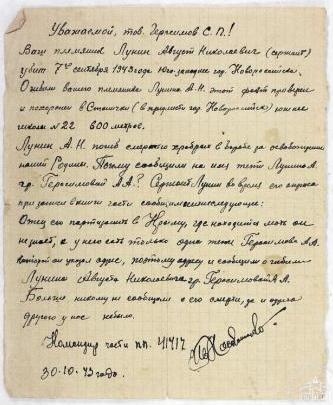 Уважаемой, тов. Герасимов С.П.!
Ваш племяник Лунин Август Николаевич (сержант)
убит 7го сентября 1943 года юго-западнее гор. Новороссийска.
О гибели вашего племяника Лунина А.Н. этот факт проверен
и похоронен в Станички (в пригороди гор. Новороссийск) южнее
школы № 22 600 метров.
Лунин А.Н. погиб смертью храбрых в борьбе за освобождение
нашей Родины. Почему сообщили на имя тети Лунина А.
гр. Герасимовой А.А.? Сержант Лунин во время его опроса
при записи в книги части сообщил нам следующее:
Отец его партизанит в Крыму, где находится мать он
не знает, а у него есть только одна тетя Герасимова А.А.
который он указал адрес, поэтому адресу и сообщили о гибели
Лунина Августа Николаевича гр. Герасимовой А.А.
Больше никому не сообщали о его смерти, да и адреса
другого у нас небыло.
Командир части пп. 41717
30.10.43 года.